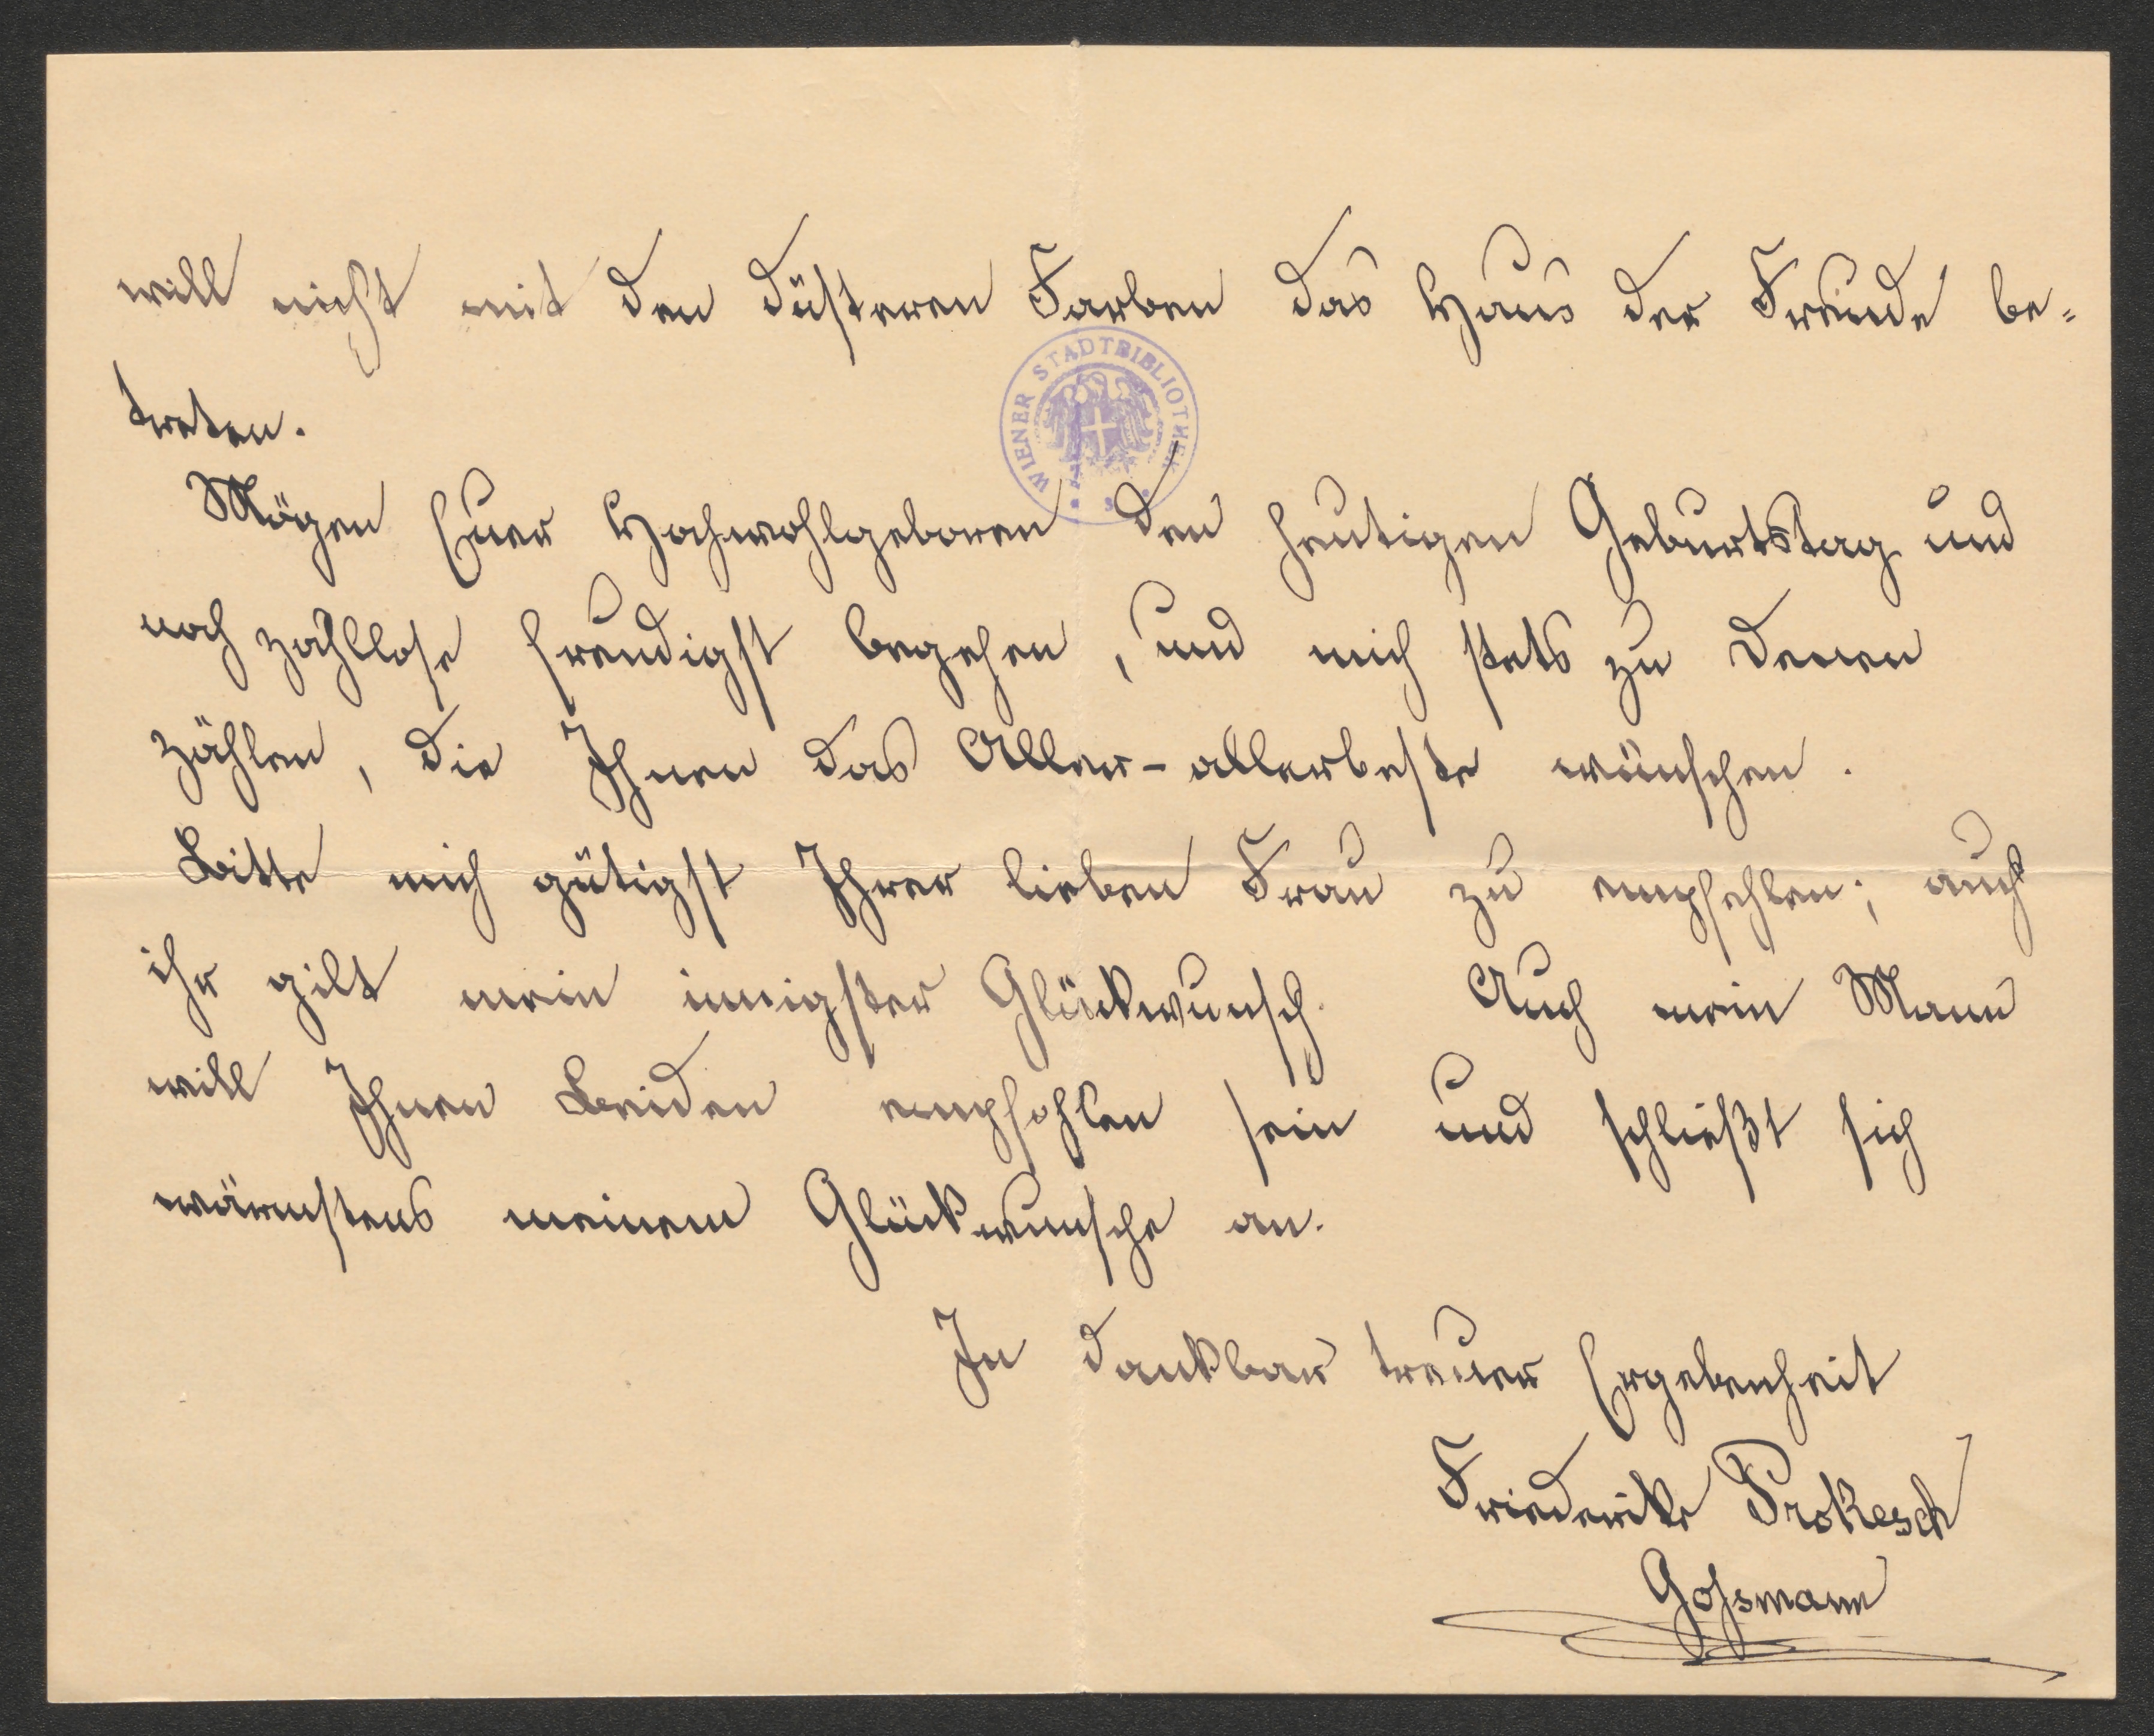 will nicht mit den düsteren Farben das Haus der Freude be-
treten.
WIENER STADTBIBLIOTHEK
Mögen Euer Hochwohlgeboren den heutigen Geburtstag und
noch zahllose freudigst begehen, und mich stets zu denen
zählen, die Ihnen das Aller-allerbeste wünschen.
Bitte mich gütigst Ihrer lieben Frau zu empfehlen; auch
ihr gilt mein innigster Glückwunsch. Auch mein Mann
will Ihnen Beiden empfohlen sein und schließt sich
wärmstens meinem Glückwunsche an.
In dankbar treuer Ergebenheit
Friederike Prokesch
Gossmann